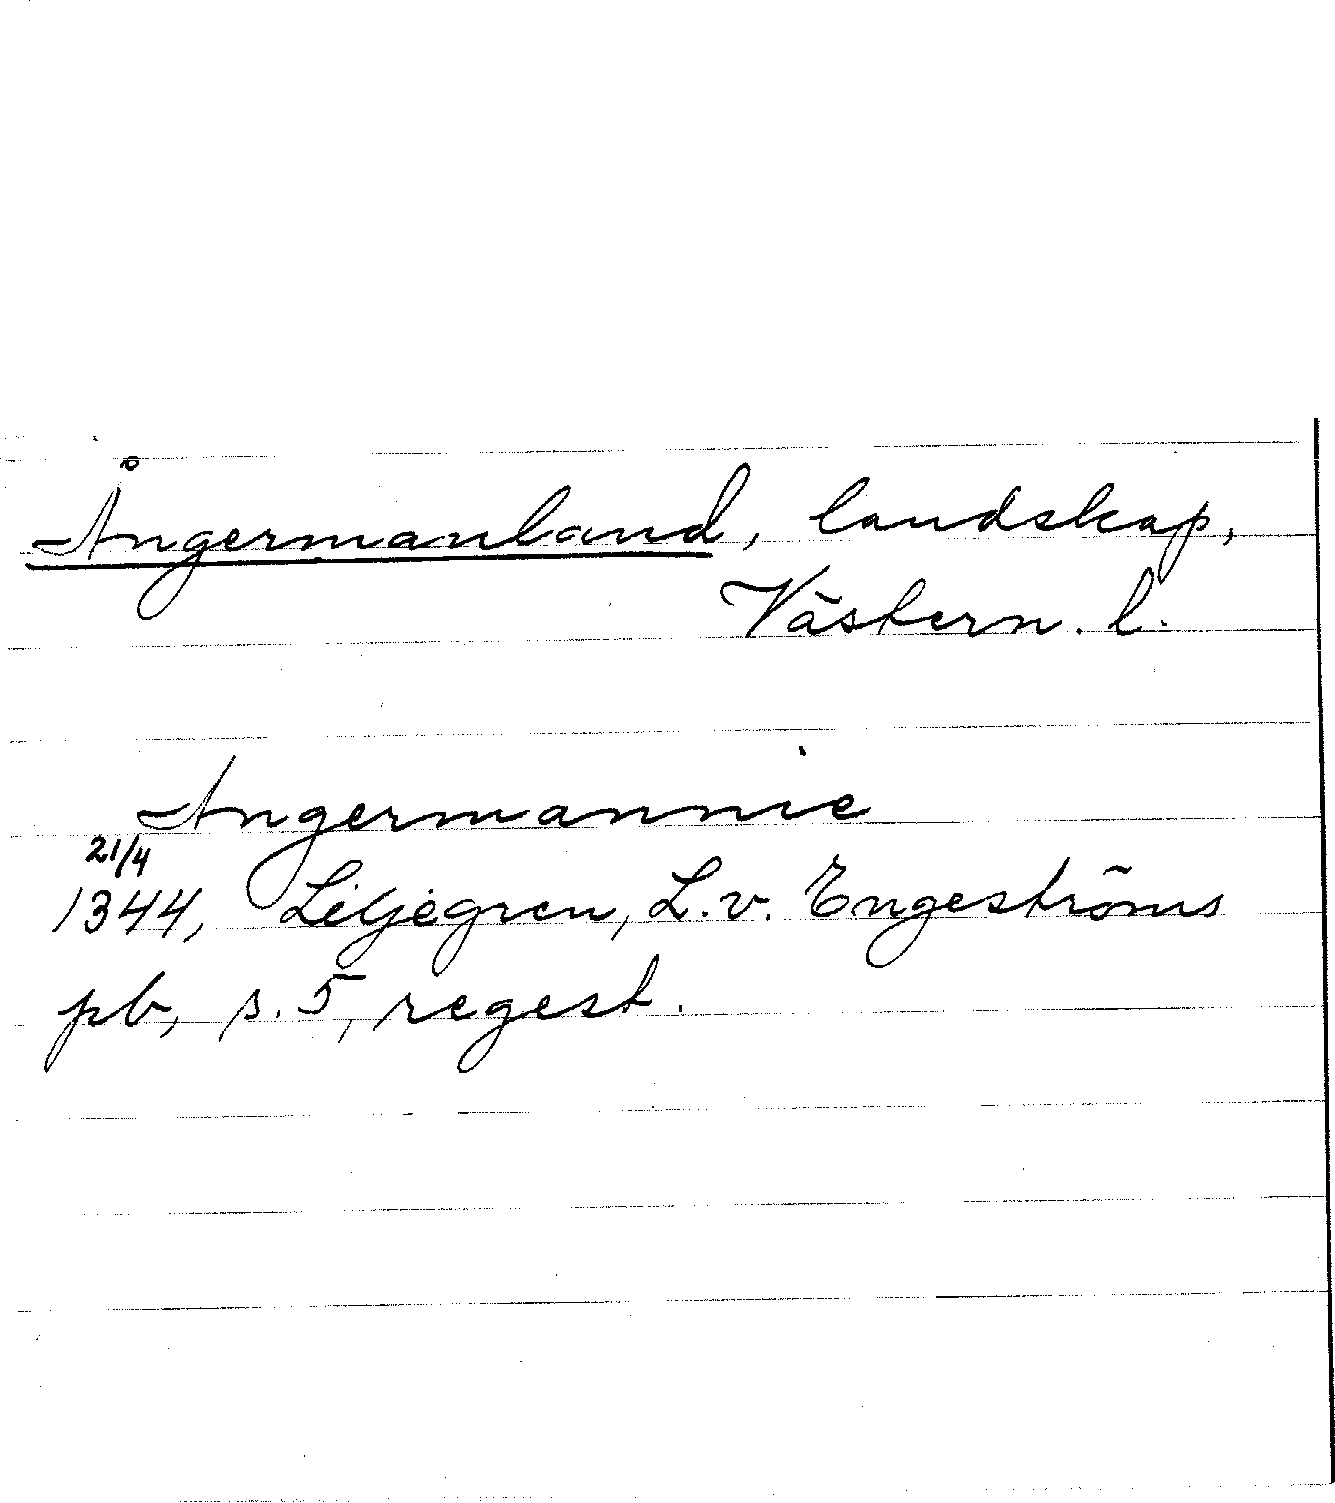 Ångermanland, landskap,
Västern. l.
Angermannie
21/4
1344, Liljegren, L. v. Engeströms
pb, s. 5, regest.